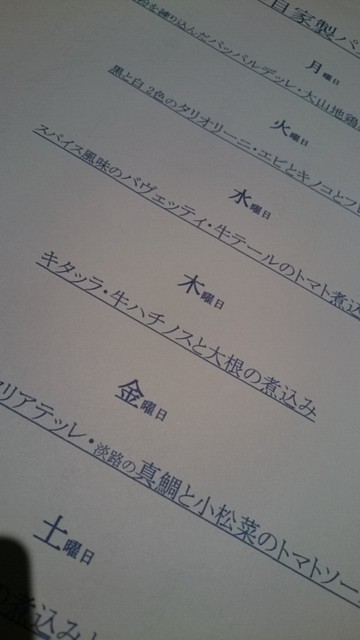 自家製パ
月曜日
を練り込んだパッパルデッレ・大山地鶏
火曜日
黒と白 2色のタリオリーニ・エビとキノコと
水曜日
スパイス風味のパヴェッティ・牛テールのトマト煮込
木曜日
キタッラ・牛ハチノスと大根の煮込み
金曜日
リアテッレ・淡路の真鯛と小松菜のトマトソー
土曜日
の煮込み